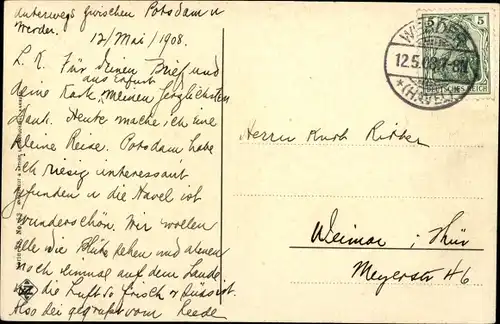 Unterwegs zwischen Potsdam u
Werder.
12/Mai/1908.
L. K. Für deinen Brief und
deine Karte aus Erfurt meinen herzlichsten
Dank. Heute mache ich eine
kleine Reise. Potsdam habe
ich riesig interessant
gefunden u die Havel ist
wunderschön. Wir wollen
alle die Blüte sehen und
noch einmal auf dem Lande
die Luft so frisch
Also sei gegrüsst vom
5 5
DEUTSCHES REICH
WERDER
12.5.08.7-8
*(HAVEL)
Herrn Kurt Ritter
Weimar i/Thür
Meyerstr 46